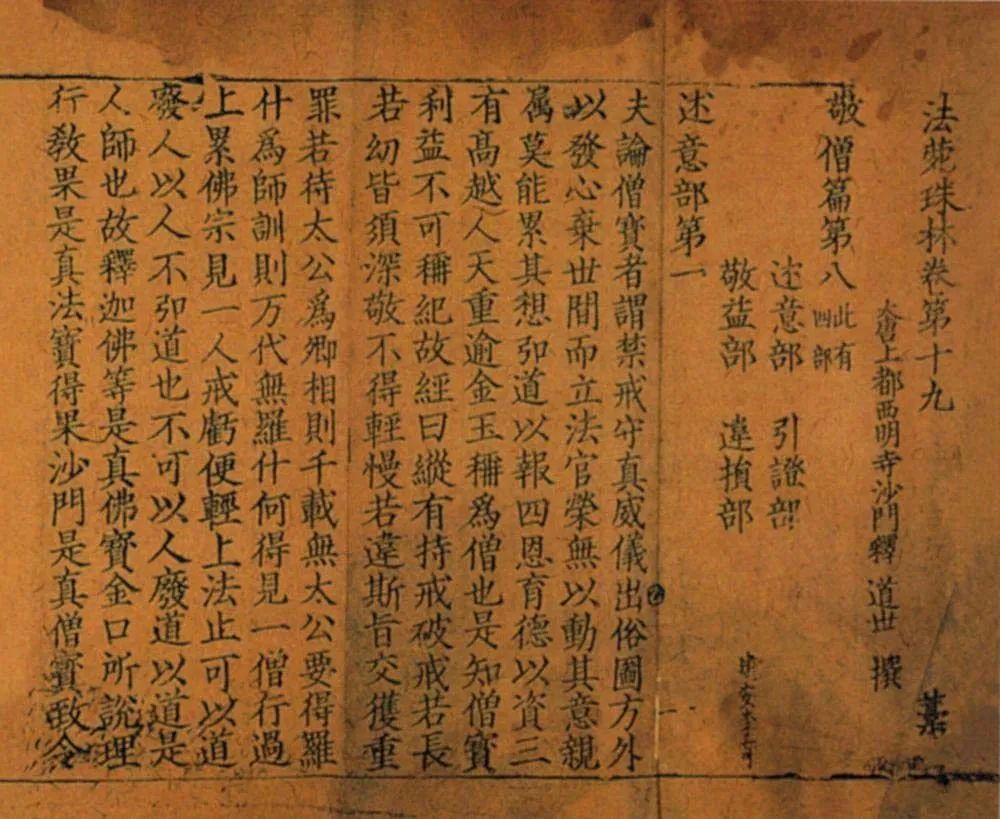 法苑珠林卷第十九
大唐上都西明寺沙門釋 道世 撰
敬僧篇第八 此有四部
述意部 引證部
敬益部 違損部
述意部第一
夫論僧寶者謂禁戒守真威儀出俗圖方外
以發心棄世間而立法官榮無以動其意親
属莫能累其想弘道以報四恩育德以資三
有高越人天重逾金玉稱為僧也是知僧寶
利益不可稱紀故經曰縱有持戒破戒若長
若幼皆須深敬不得輕慢若違斯旨交獲重
罪若待太公爲卿相則千載無太公要得羅
什爲師訓則万代無羅什何得見一僧行過
上累佛宗見一人戒虧便輕上法止可以道
廢人以人不弘道也不可以人廢道以道是
人師也故釋迦佛等是真佛寶金口所說理
行教果是真法寶得果沙門是真僧寶致令